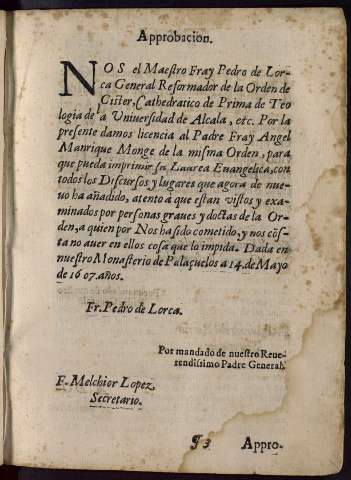 Approbacion.
NOS el Maestro Fray Pedro de Lor-
ca General Reformador de la Orden de
Cister, Cathedratico de Prima de Teo
logia de a Universidad de Alcala, etc. Por la
presente damos licencia al Padre Fray Angel
Manrique Monge de la misma Orden, para
que pueda imprimir su Laurea Euangelica, con
todos los Discursos y lugares que agora de nue-
uo ha añadido, atento a que estan vistos y exa-
minados por personas graues y doctas de la Or-
den, a quien por Nos ha sido cometido, y nos cõs-
ta no auer en ellos cosa que lo impida. Dada en
nuestro Monasterio de Palaçuelos a 14. de Mayo
de 1607. años.
Fr. Pedro de Lorca.
Por mandado de nuestro Reue-
rendissimo Padre General.
F. Melchior Lopez
Secretario.
¶ 3 Appro-